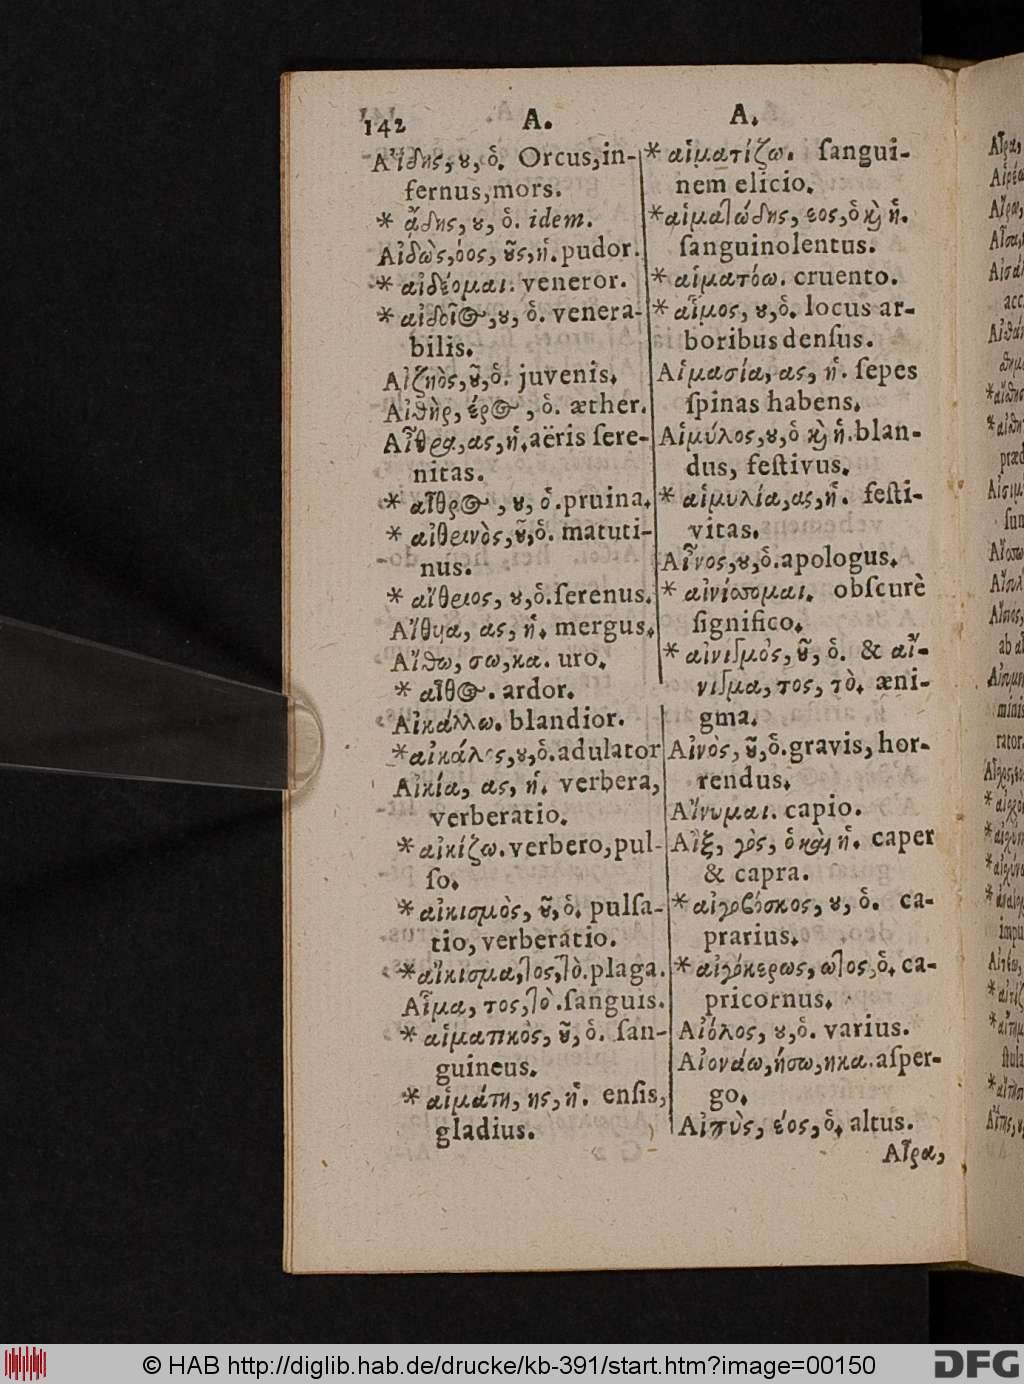 142 A. A.
Ἀΐδης, ου, ὁ. Orcus, in-
fernus, mors.
* ᾅδης, ου, ὁ. idem.
Αἰδὼς, όος, οῦς, ἡ. pudor.
* αἰδέομαι. veneror.
* αἰδοῖος, ου, ὁ. venera-
bilis.
Αἰζηὸς, οῦ, ὁ. juvenis.
Αἰθὴρ, έρος, ὁ. æther.
Αἶθρα, ας, ἡ. aëris ſere-
nitas.
* αἶθρος, ου, ὁ. pruina.
* αἰθεινὸς, οῦ, ὁ. matuti-
nus.
* αἴθειος, ου, ὁ. ſerenus.
Αἴθυα, ας, ἡ. mergus.
Αἴθω, σω, κα. uro.
* αἶθος. ardor.
Αἰκάλλω. blandior.
* αἰκάλος, ου, ὁ. adulator
Αἰκία, ας, ἡ. verbera,
verberatio.
* αἰκίζω. verbero, pul-
ſo.
* αἰκισμὸς, οῦ, ὁ. pulſa-
tio, verberatio.
* αἴκισμα, τος, τὸ. plaga.
Αἷμα, τος, τὸ. ſanguis.
* αἱματικὸς, οῦ, ὁ. ſan-
guineus.
* αἱμάτη, ης, ἡ. enſis,
gladius.
* αἱματίζω. ſangui-
nem elicio.
* αἱματώδης, εος, ὁ καὶ ἡ.
ſanguinolentus.
* αἱματόω. cruento.
* αἷμος, ου, ὁ. locus ar-
boribus denſus.
Αἱμασία, ας, ἡ. ſepes
ſpinas habens.
Αἱμύλος, ου, ὁ καὶ ἡ. blan-
dus, feſtivus.
* αἱμυλία, ας, ἡ. feſti-
vitas.
Αἶνος, ου, ὁ. apologus.
* αἰνίττομαι. obſcurè
ſignifico.
* αἰνισμὸς, οῦ, ὁ. & αἴ-
νισμα, τος, τὸ. æni-
gma.
Αἰνὸς, οῦ, ὁ. gravis, hor-
rendus.
Αἴνυμαι. capio.
Αἲξ, γὸς, ὁ καὶ ἡ. caper
& capra.
* αἰγοβόσκος, ου, ὁ. ca-
prarius.
* αἰγόκερως, ωτος, ὁ. ca-
pricornus.
Αἰόλος, ου, ὁ. varius.
Αἰονάω, ήσω, ηκα. aſper-
go.
Αἰπὺς, έος, ὁ. altus.
Αἶρα,
© HAB http://diglib.hab.de/drucke/kb-391/start.htm?image=00150
DFG